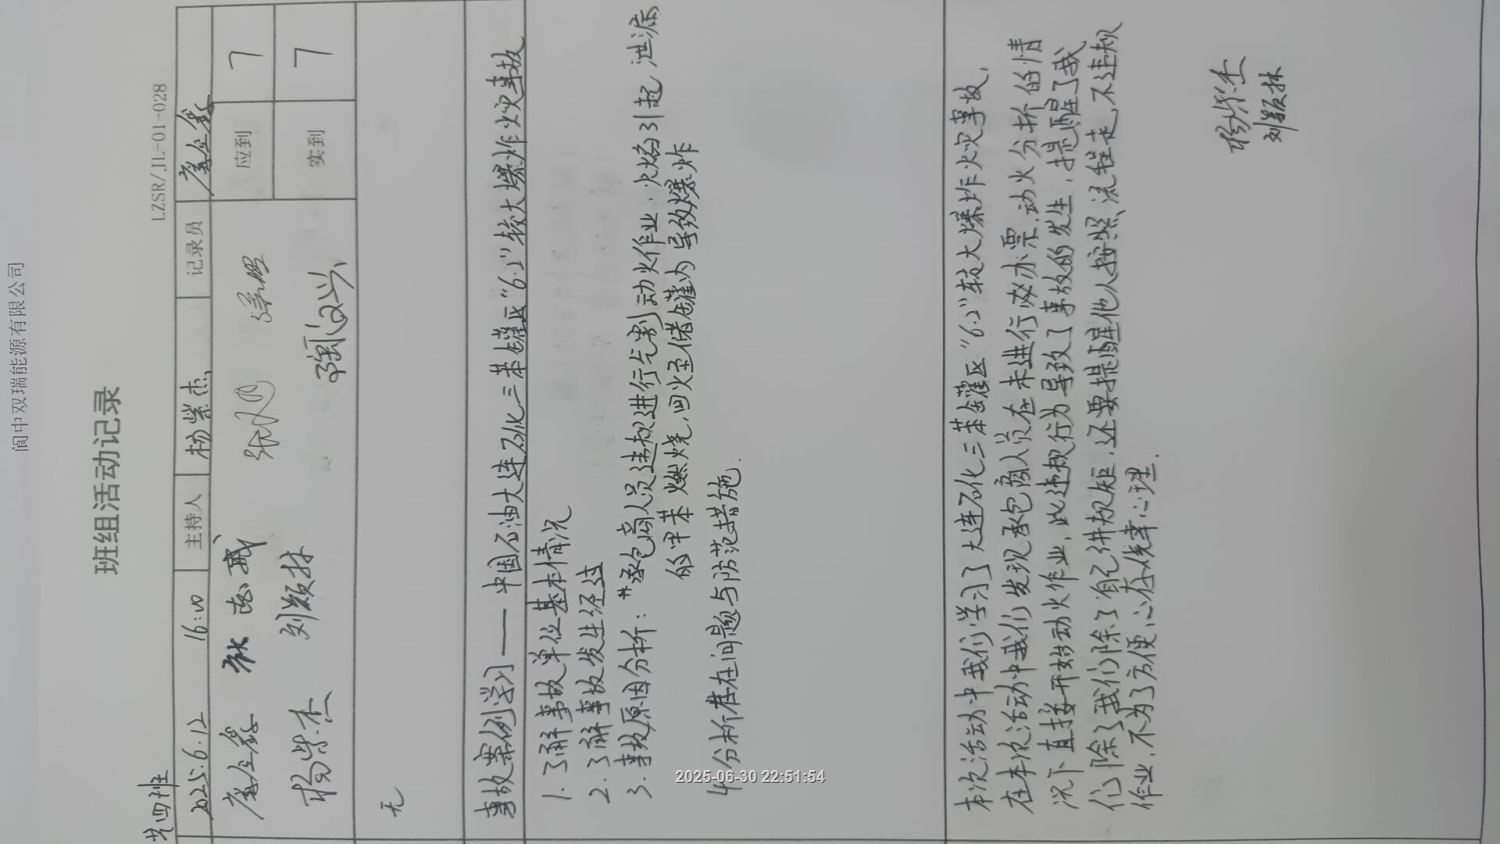 阆中双瑞能源有限公司
班组活动记录
LZSR/JL-01-028
2025.6.12 16:00 主持人 杨紫杰 记录员
应到 7
杨紫杰 刘颖林 实到 7
无
事故案例学习——中国石油大连石化三苯罐区“6.2”较大爆炸火灾事故
1.了解事故单位基本情况
2.了解事故发生经过
3.事故原因分析:“承包商人员违规进行气割动火作业,火焰引起泄漏
的甲苯燃烧,回火至储罐内导致爆炸
4.分析存在问题与防范措施.
本次活动中我们学习了大连石化三苯罐区“6.2”较大爆炸火灾事故,
在本次活动中我们发现承包商人员在未进行办票,动火分析的情
况下直接开始动火作业,此违规行为导致了事故的发生,提醒了我
们除了我们除了自己讲规矩,还要提醒他人按照流程走,不违规
作业,不为了方便心存侥幸心理.
杨紫杰
刘颖林
2025-06-30 22:51:54